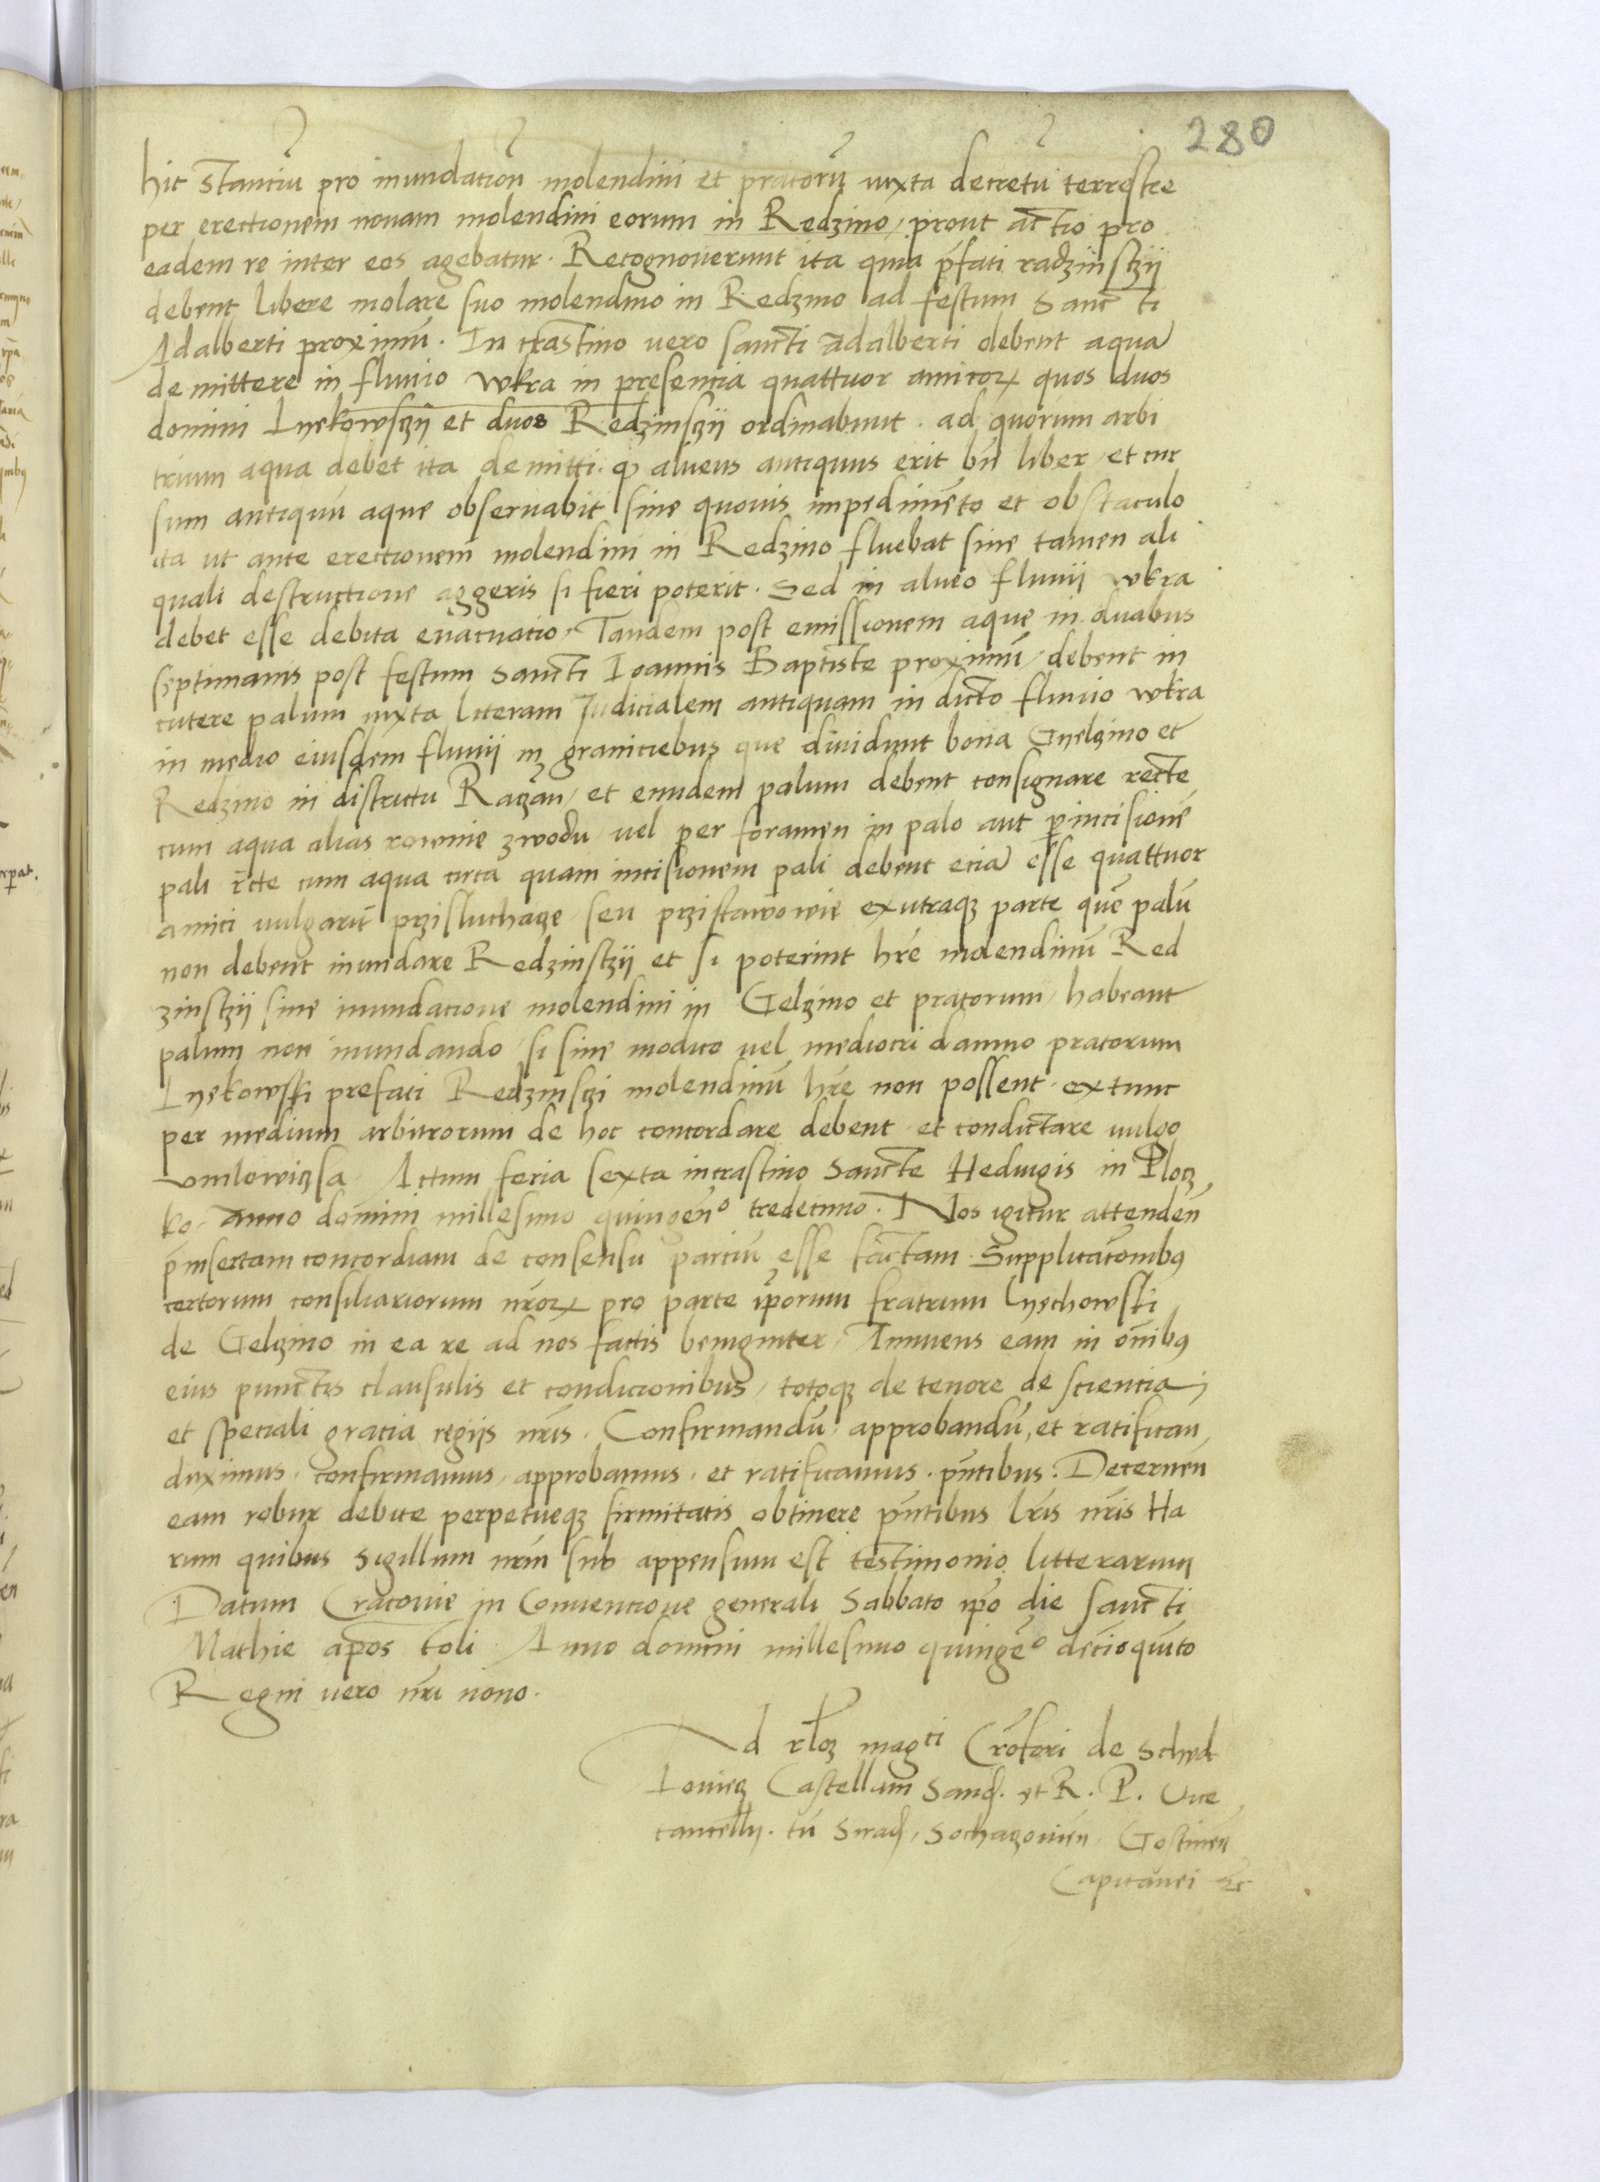 280
hic stantiū pro inundation̄ molendini et pratorū iuxta decretū terrestre
per erectionem nouam molendini eorum in Redzino, prout actio pro
eadem re inter eos agebatur. Recognouerunt ita quia p̄fati radzinsczÿ
debent libere molare suo molendino in Redzino ad festum Sancti
Adalberti proximū. In crastino vero sancti adalberti debent aquā
demittere in fluuio wkra in presencia quattuor amicoꝝ quos duos
domini Lyekowsczÿ et duos Redzinsczÿ ordinabunt. ad quorum arbi
trium aqua debet ita demitti. ꝙ alueus antiquus erit bn̄ liber, et cur
sum antiquū aque obseruabit sine quouis impedimēto et obstaculo
ita ut ante erectionem molendini in Redzino fluebat sine tamen ali
quali destructione aggeris si fieri poterit. Sed in alueo fluuii wkra
debet esse debita euacuatio. Tandem post emissionem aque in duabus
septimanis post festum Sancti Ioannis Baptiste proximū, debent in
cutere palum iuxta literam Judicialem antiquam in dicto fluuio wkra
in medio eiusdem fluuii in graniciebus que diuidunt bona Gyelzino et
Redzino in districtu Raczāz, et eundem palum debent consignare recte
cum aqua alias rownie zwodu, vel per foramen in palo aut ꝑ incisionē
pali rc̄te cum aqua circa quam incisionem pali debent eciā esse quattuor
amici vulgarit̄ przisluchacze, seu przistawowie ex utraqꝫ parte quē palū
non debent inundare Redzinsczÿ et si poterint hr̄e molendinū Red
zinsczÿ sine inundatione molendini in Gelzino et pratorum, habeant
palum non inundando, si sine modico vel mediocri damno pratorum
Lyekowski prefati Redzinsczi molendinū hr̄e non possent. extunc
per medium arbitrorum de hoc concordare debent et condictare vulgo
vmlowiczsa. Actum feria sexta in crastino Sancte Heduigis in Plocz
ko. anno domini millesimo quingen̄º tredecimo. Nos igitur attenden̄
p̄insertam concordiam de consensu parciū esse factam. Supplicationibꝰ
certorum consiliariorum nr̄oꝝ pro parte ip̄orum fratrum Lyechowski
de Gelzino in ea re ad nos factis benigniter, Annuens eam in oīnibꝰ
eius punctis clausulis et condicionibus, totoqꝫ de tenore de sciencia
et speciali gracia regiis nr̄is. Confirmandū, approbandū, et ratifican
duximus, confirmamus, approbamus, et ratificamus. pn̄tibus. Decernen̄
eam robur debite perpetueqꝫ firmitatis obtinere pn̄tibus lr̄is nr̄is Ha
rum quibus Sigillum nr̄m sub appensum est testimonio litterarum
Datum Cracouie in Conuentione generali Sabbato ip̄o die sancti
Mathie apos toli. Anno domini millesimo quingē̄º decīoquīto
Regni vero nr̄i nono.
Ad rl̄oꝫ mag̅ci Cr̄ofori de Schid
louiecz Castellani Sand̄. et R. P. Vice
cancellÿ. tū Sirad̄, Sochaczouien̄, Gostinen̄
Capitanei ⁊c